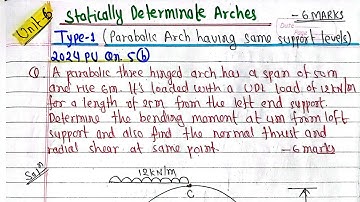 Unit 6
Statically Determinate Arches
- 6 MARKS
Type-1 (Parabolic Arch having same support levels)
2024 PU Qn. 5(b)
Q. A parabolic three hinged arch has a span of 50m
and rise 6m. It's loaded with a UDL load of 12kN/m
for a length of 25m from the left end support.
Determine the bending moment at 4m from left
support and also find the normal thrust and
radial shear at same point. - 6 marks
Sol^n
12kN/m
C